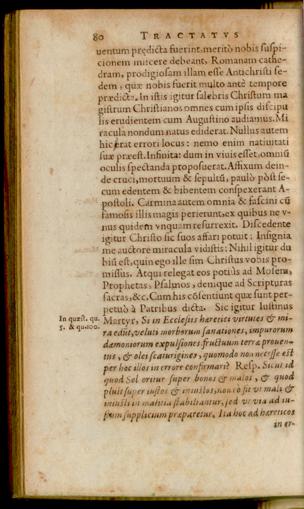 80 TRACTATVS
uentum prędicta fuerint, meritò nobis suspi-
cionem inijcere debeant, Romanam cathe-
dram, prodigiosam illam esse Antichristi se-
dem, quæ nobis fuerit multo antè tempore
prædicta. In istis igitur salebris Christum ma
gistrum Christianos omnes cum ipsis discipu
lis erudientem cum Augustino audiamus. Mi
racula nondum natus ediderat. Nullus autem
hic erat errori locus: nemo enim natiuitati
suæ præest. Infinita: dum in viuis esset, omniũ
oculis spectanda proposuerat. Affixum dein-
de cruci, mortuum & sepultũ, paulò pòst se-
cum edentem & bibentem conspexerant A-
postoli. Carmina autem omnia & fascini cũ
famosis illis magis perierunt, ex quibus ne v-
nus quidem vnquam resurrexit. Discedente
igitur Christo sic suos affari potuit: Insignia
me auctore miracula vidistis: Nihil igitur du
bij est, quin ego ille sim Christus vobis pro-
missus. Atqui relegat eos potiùs ad Mosem,
Prophetas, Psalmos, denique ad Scripturas
sacras, &c. Cum his cõsentiũt quæ sunt per-
petuò à Patribus dicta. Sic igitur Iustinus
In quæst. qu. 5. & qu. 100.
Martyr, Si in Ecclesiis hæretici virtutes & mi-
ra edũt, veluti morborum sanationes, impurorum
dæmoniorum expulsiones, fructuum terræ prouen-
tus, & olei scaturigines, quomodo non necesse est
per hoc illos in errore confirmari? Resp. Sicut id
quod Sol oritur super bonos & malos, & quod
pluit super iustos & iniustos, non eò fit vt mali &
iniusti in malitia stabiliantur, sed vt via ad iu-
stum supplicium præparetur. Ita hoc ad hæreticos
in er-